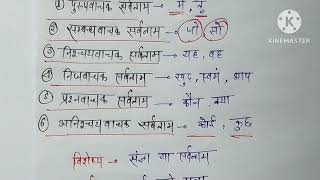 ① पुरुषवाचक सर्वनाम → मैं, तू
② सम्बन्धवाचक सर्वनाम → जो सो
③ निश्चयवाचक सर्वनाम → यह, वह
④ निजवाचक सर्वनाम → खुद, स्वयं, आप
⑤ प्रश्नवाचक सर्वनाम → कौन, क्या
⑥ अनिश्चयवाचक सर्वनाम → कोई, कुछ
विशेषण → संज्ञा या सर्वनाम
KINEMASTER